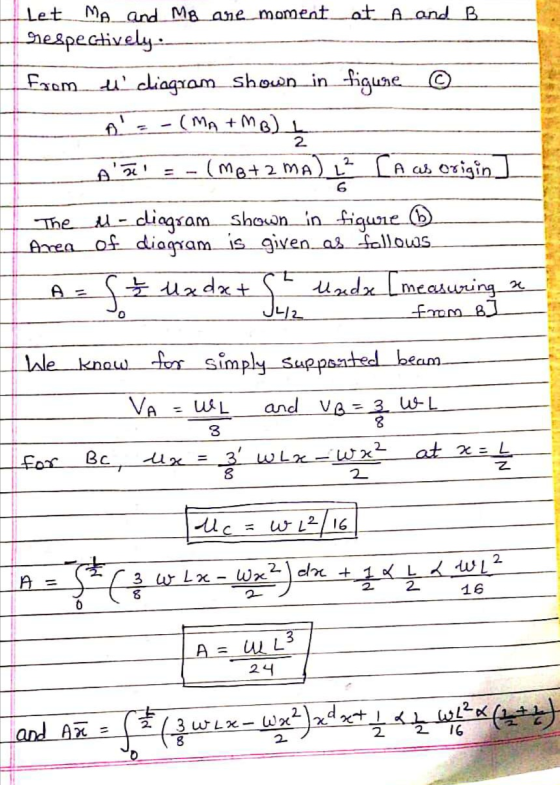 Let MA and MB are moment at A and B
respectively.
From μ' diagram shown in figure ⓒ
A' = - (MA + MB) L/2
A'x̄' = - (MB + 2 MA) L²/6 [A as origin]
The μ - diagram shown in figure ⓑ
Area of diagram is given as follows
A = ∫₀^(L/2) μx dx + ∫_(L/2)^L μx dx [measuring x
from B]
We know for simply supported beam
VA = WL/8 and VB = 3/8 WL
For BC, μx = 3/8 WLx - Wx²/2 at x = L/2
μc = WL²/16
A = ∫₀^(L/2) (3/8 WLx - Wx²/2) dx + 1/2 × L/2 × WL²/16
A = WL³/24
and Ax̄ = ∫₀^(L/2) (3/8 WLx - Wx²/2) x dx + 1/2 × L/2 WL²/16 × (L/2 + L/6)